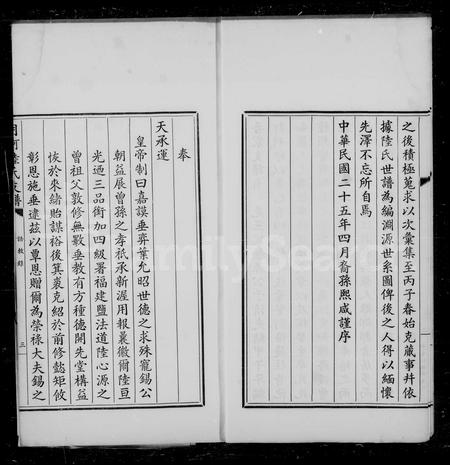 之後積極蒐求以次彙集至丙子春始克蕆事幷依
據陸氏世譜為編淵源世系圖俾後之人得以緬懷
先澤不忘所自焉
中華民國二十五年四月裔孫熙咸謹序
奉
天承運
皇帝制曰嘉謨垂弈葉允昭世德之求殊寵錫公
朝益展曾孫之孝祇承新渥用報曩徽爾陸亘
光迺三品銜加四級署福建鹽法道陸心源之
曾祖父敦修無斁垂教有方種德開先堂構益
恢於來緒貽謀裕後箕裘克紹於前修懿矩攸
彰恩施垂逮茲以覃恩贈爾為榮祿大夫錫之
氏支譜
誥敕錄
三
FamilySearch